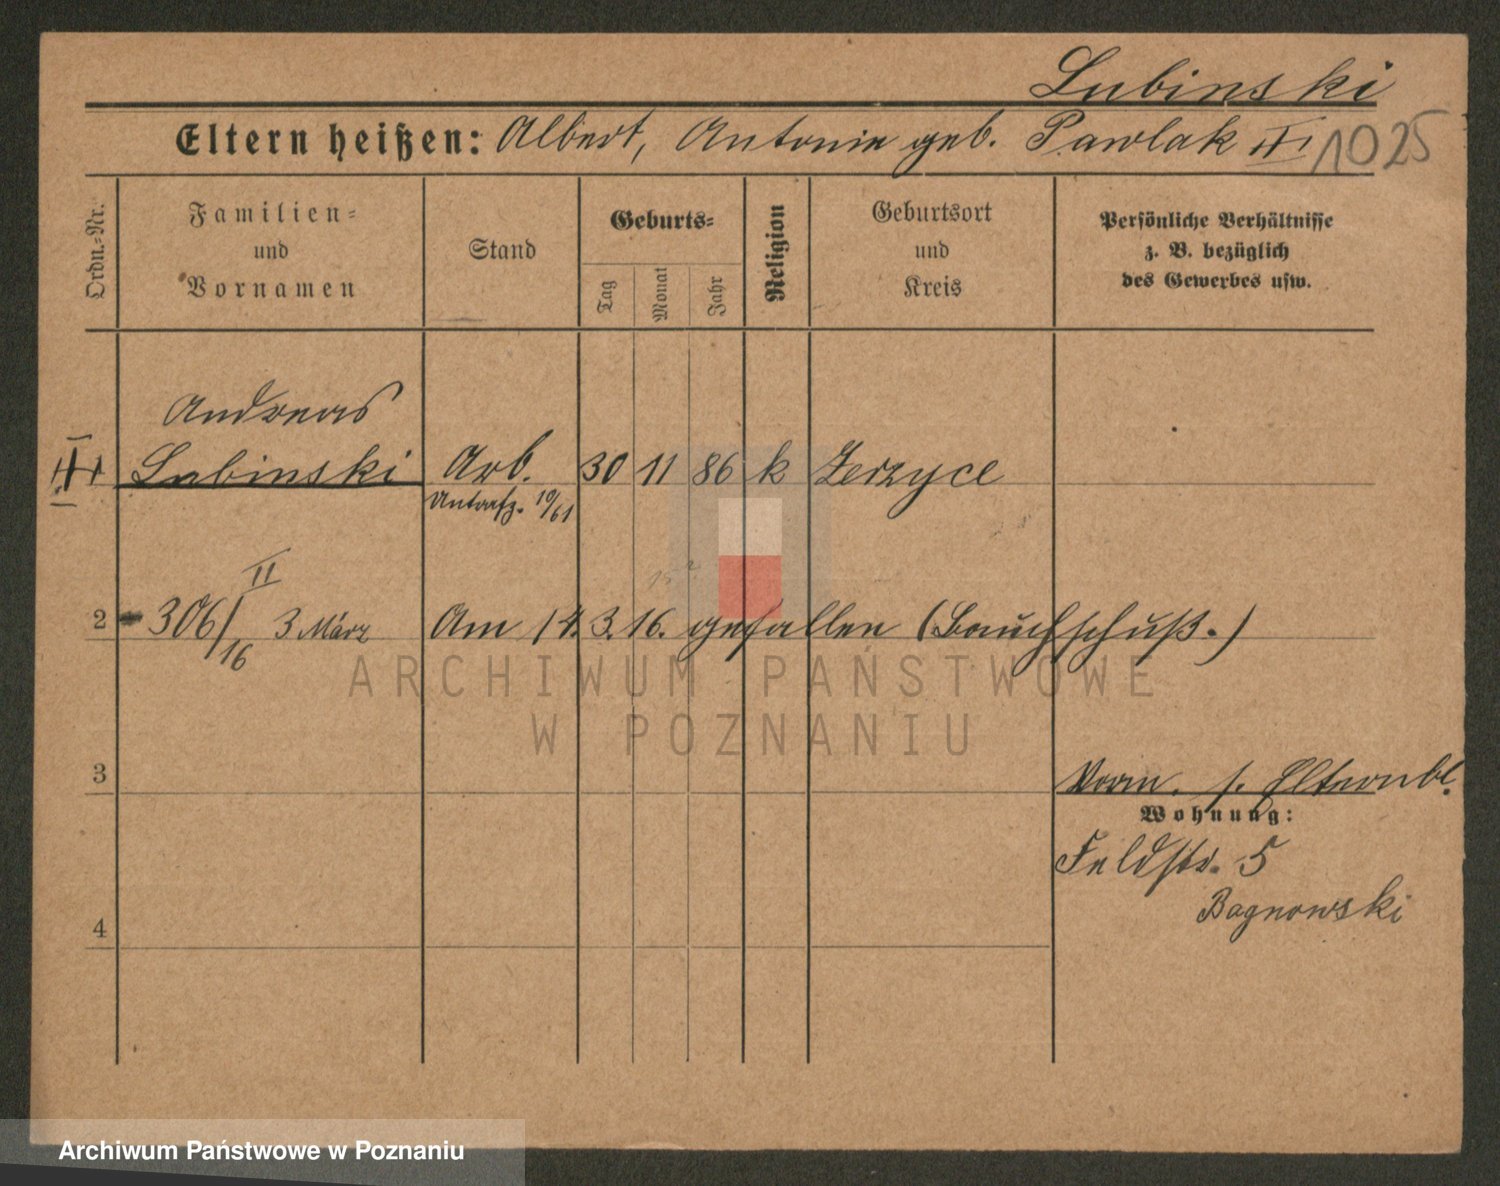 Lubinski
Eltern heißen: Albert, Antonie geb. Pawlak 1025
Ordn.-Nr.
Familien-
und
Vornamen
Stand
Geburts-
Tag
Monat
Jahr
Religion
Geburtsort
und
Kreis
Persönliche Verhältnisse
z. B. bezüglich
des Gewerbes usw.
Andreas
Lubinski Arb. 30 11 86 k Jerzyce
10/61
II
2 306/16 3 März Am 14.3.16. gefallen (Bauchschuß.)
ARCHIWUM PAŃSTWOWE
W POZNANIU
3
Vorm. s. Elternbl.
Wohnung:
Feldstr. 5
Bagnowski
4
Archiwum Państwowe w Poznaniu